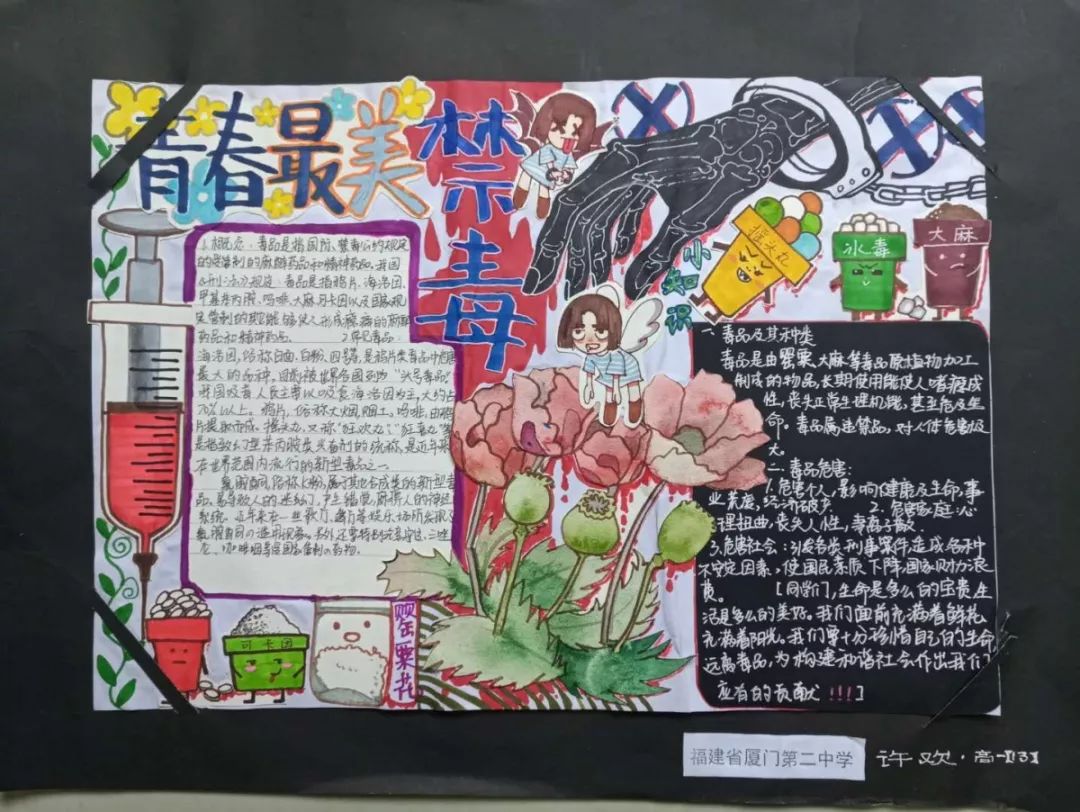 青春最美
禁毒
小知识
摇头丸
冰毒
大麻
1.概念：毒品是指国际禁毒公约规定
的受管制的麻醉药品和精神药品。我国
《刑法》规定：毒品是指鸦片、海洛因、
甲基苯丙胺、吗啡、大麻、可卡因以及国家规
定管制的其它能够使人形成瘾癖的麻醉
药品和精神药品。 2.常见毒品：
海洛因，俗称白面、白粉、四号，是鸦片类毒品中危害
最大的品种，目前被世界各国列为“头号毒品”
我国吸毒人民主要以吸食海洛因为主，大约占
70%以上。鸦片，俗称大烟、烟土，吗啡，由鸦
片提取而成。摇头丸，又称“狂欢丸”“狂喜丸”等
是指致幻型苯丙胺类兴奋剂的统称，是近年来
在世界范围内流行的新型毒品之一
氯胺酮，俗称K粉，属于其它合成类的新型毒
品，易导致人的迷幻，产生错觉，麻痹人的神经
系统。近年来在一些歌厅、 等娱乐场所发现
氯胺酮的滥用现象。另外还要特别注意安定、三唑
仑、咖啡因等国家管制的药物。
一、毒品及其种类
毒品是由罂粟、大麻等毒品原植物加工
制成的物品，长期使用能使人嗜瘾成
性，丧失正常生理机能，甚至危及生
命。毒品属违禁品，对人体危害极
大。
二、毒品危害：
1.危害个人，影响健康及生命，事
业荒废，经济破产 2.危害家庭：心
理扭曲，丧失人性，妻离子散。
3.危害社会：引发各类刑事案件造成各种
不安定因素，使国民素质下降，国家财力浪
费。 [同学们，生命是多么的宝贵，生
活是多么的美好。我们面前充满着鲜花
充满着阳光。我们要十分珍惜自己的生命
远离毒品，为构建和谐社会作出我们
应有的贡献!!!]
可卡因
罂粟花
福建省厦门第二中学 许欢·高一【13】